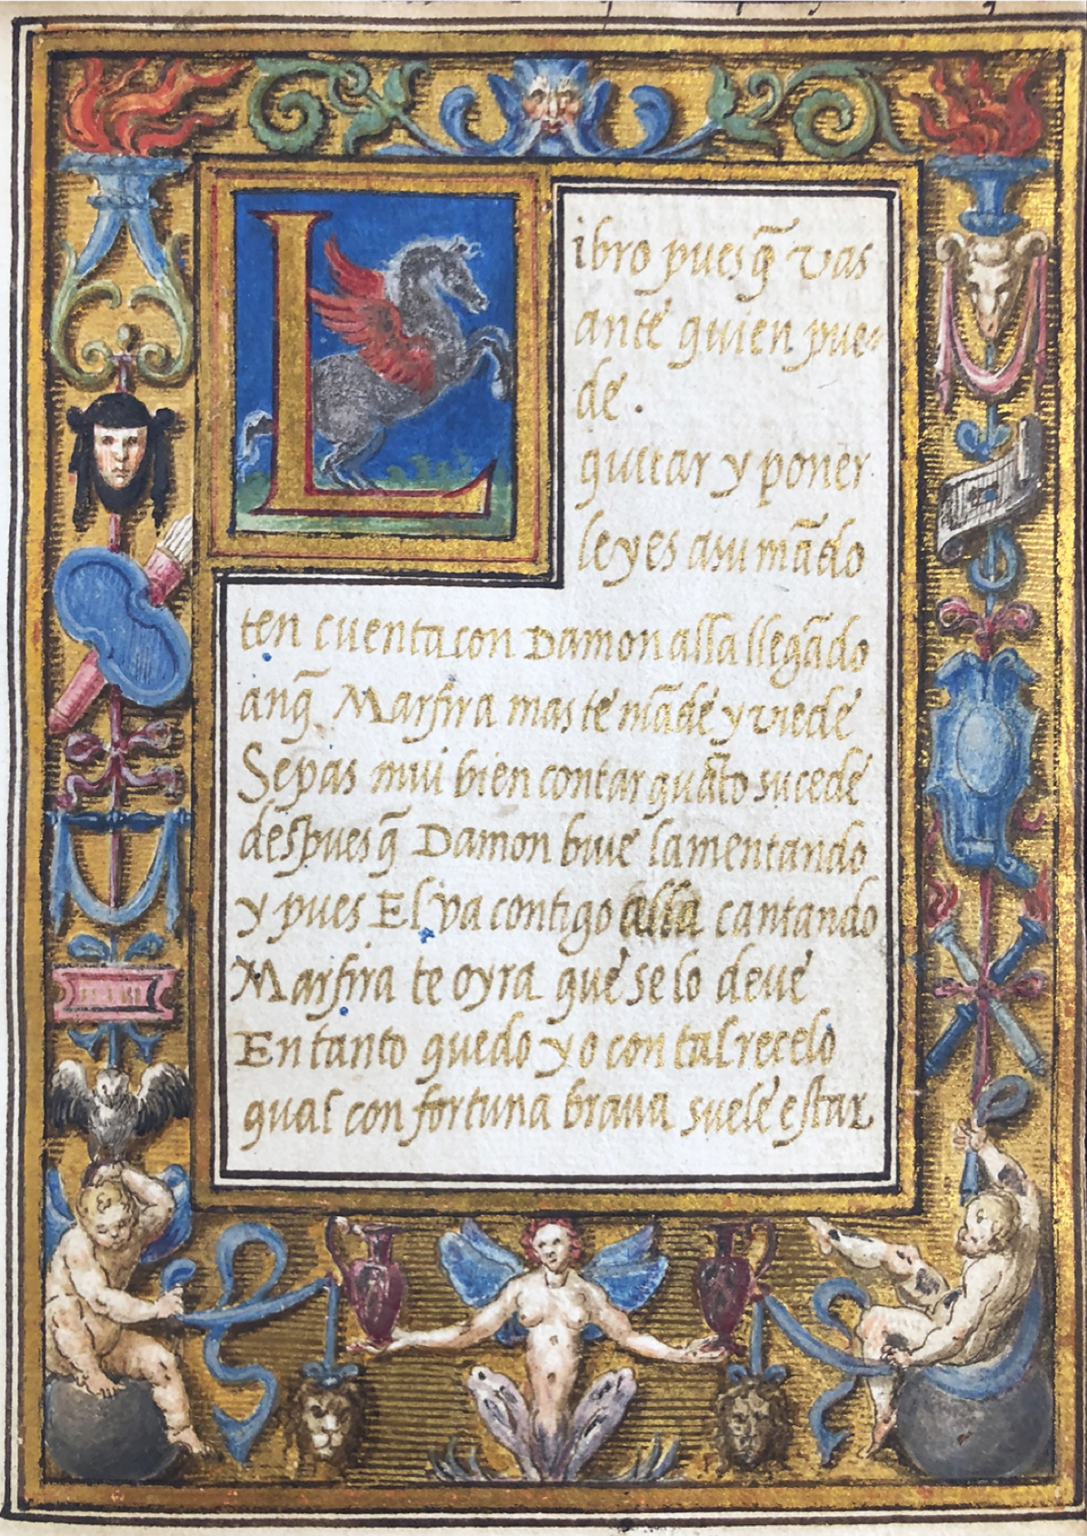 Libro pues q̃ vas
ante quien pue-
de.
quitar y poner
leyes a su mãdo
ten cuenta con Damon alla llegãdo
an q̃ Marfira mas te mãde y vede
Sepas mui bien contar quãto sucede
despues q̃ Damon biue lamentando
y pues El va contigo alla cantando
Marfira te oyra que se lo deue
En tanto quedo yo con tal recelo
qual con fortuna braua suele estar